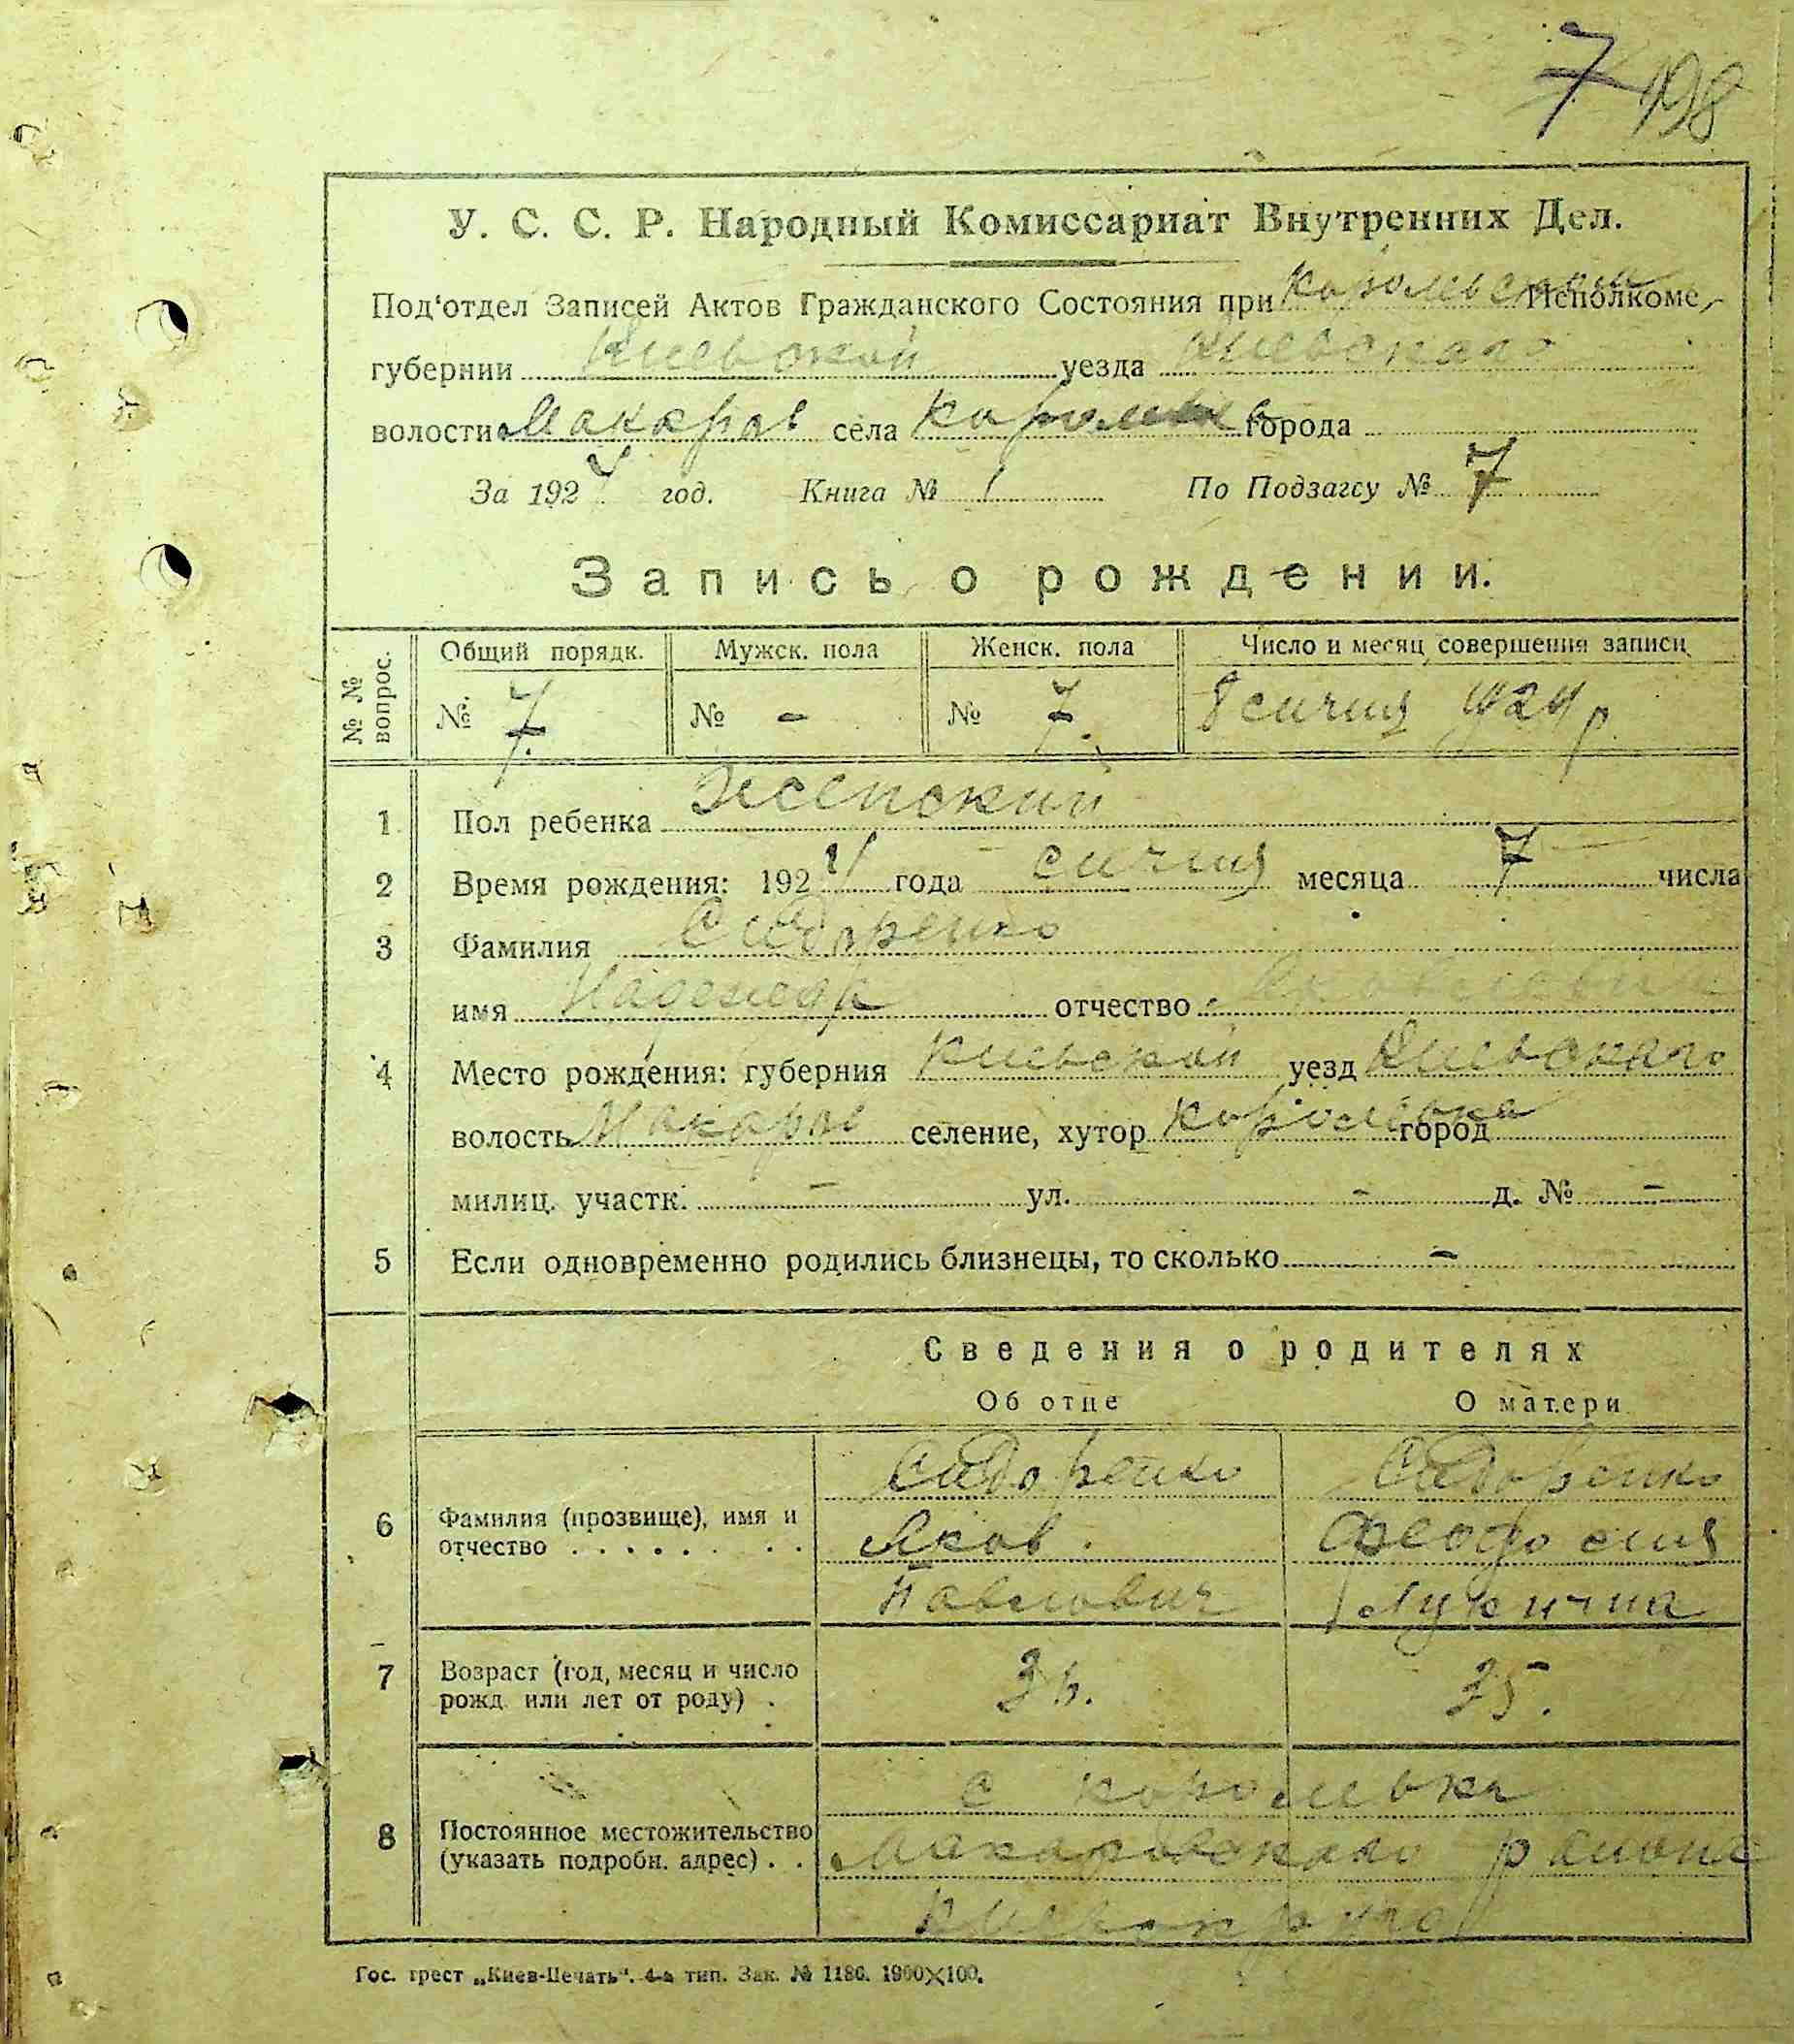 7 198
У. С. С. Р. Народный Комиссариат Внутренних Дел.
Под'отдел Записей Актов Гражданского Состояния при Королевском Исполкоме,
губернии Киевской уезда Киевского
волости Макаров села Королевка города
За 1924 год. Книга № 1 По Подзагсу № 7
Запись о рождении.
№ № вопрос. Общий порядк. Мужск. пола Женск. пола Число и месяц совершения записи
№ 7. № - № 7. 8 сичня 1924 р.
1 Пол ребенка Женский
2 Время рождения: 1924 года сичня месяца 7 числа
3 Фамилия Сидоренко
имя Надежда отчество Яковлевна
4 Место рождения: губерния Киевской уезд Киевского
волость Макаров селение, хутор Королевка город
милиц. участк. - ул. - д. № -
5 Если одновременно родились близнецы, то сколько -
Сведения о родителях
Об отце О матери
Сидоренко Сидоренко
6 Фамилия (прозвище), имя и отчество . . . . . . . . Яков. Феодосия
Павлович Лукична
7 Возраст (год, месяц и число рожд. или лет от роду) . 36. 35.
с Королевка
8 Постоянное местожительство (указать подробн. адрес) . . Макаровского района
Гос. трест „Киев-Печать". 4-а тип. Зак. № 1186. 1900×100.